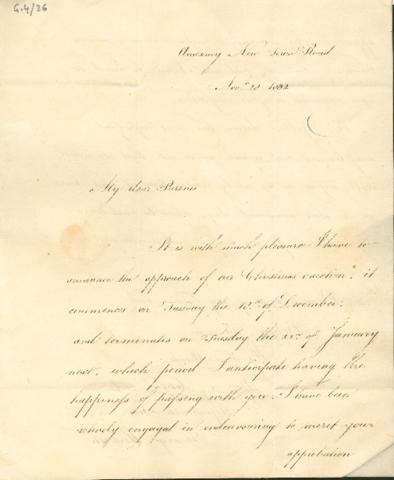 G.4/26
Academy New Town Road
Nov.r 28 1832
My dear Parents
It is with much pleasure I have to
announce the approach of our Christmas vacation; it
commences on Tuesday the 18th of December,
and terminates on Tuesday the 22nd of January
next, which period I anticipate having the
happiness of passing with you. I have been
wholly engaged in endeavouring to merit your
approbation